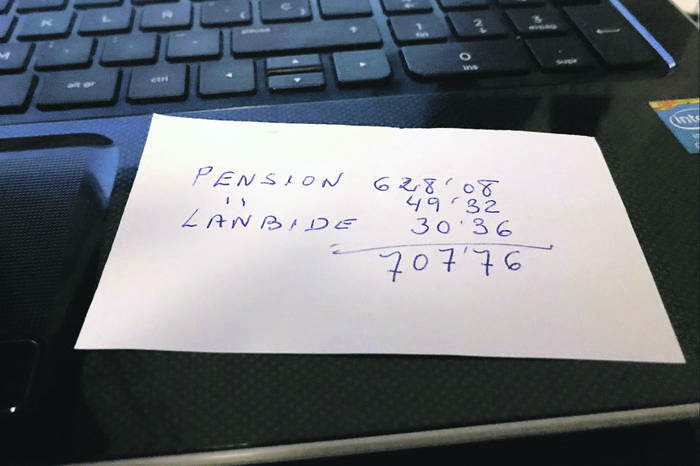 K L Ñ
1
fin
2
3
avpág
M
alt gr
ctrl
0
ins
supr
inte
PENSION 628'08
" 49'32
LANBIDE 30'36
707'76